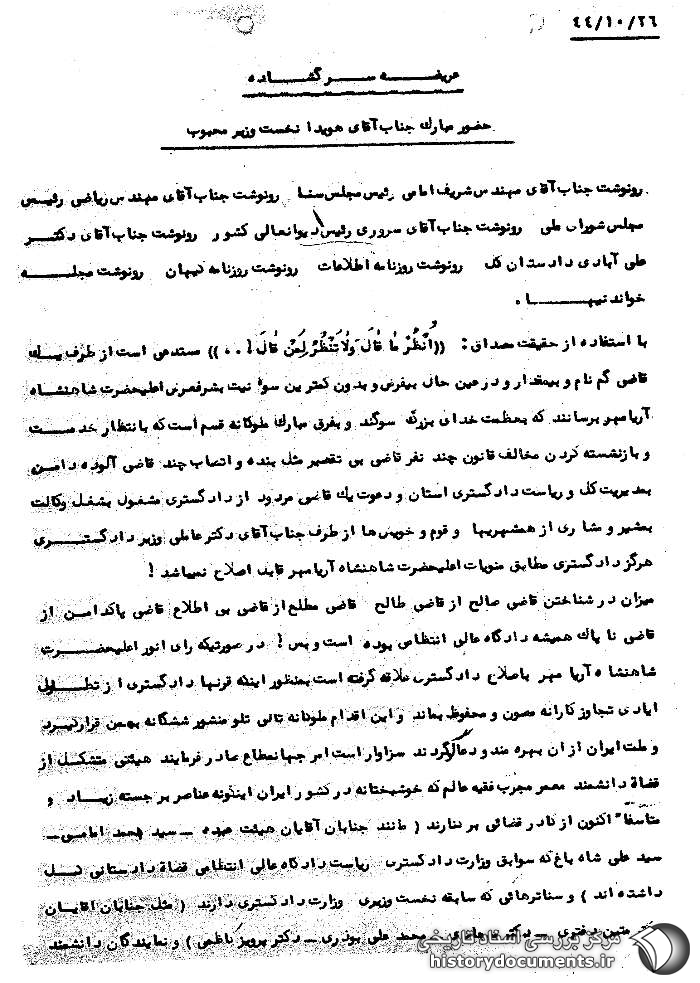 ٤٤/١٠/٢٦
عریضه سرگشاده
حضور مبارك جناب آقای هویدا نخست وزیر محبوب
رونوشت جناب آقای مهندس شریف امامی رئیس مجلس سنا رونوشت جناب آقای مهندس ریاضی رئیس
مجلس شورای ملی رونوشت جناب آقای سروری رئیس دیوانعالی کشور رونوشت جناب آقای دکتر
علی آبادی دادستان کل رونوشت روزنامه اطلاعات رونوشت روزنامه کیهان رونوشت مجله
خواندنیها .
با استفاده از حقیقت مصداق : ((اُنْظُرْ ما قالَ وَلاتَنْظُرْ لِمَنْ قالَ ! ..)) مستدعی است از طرف یك
قاضی گم نام و بیمقدار و در عین حال بیغرض و بدون کمترین سوء نیت بشرفعرض اعلیحضرت شاهنشاه
آریامهر برسانند که بعظمت خدای بزرگ سوگند و بفرق مبارك ملوکانه قسم است که با انتظار خدمت
و بازنشسته کردن مخالف قانون چند نفر قاضی بی تقصیر مثل بنده و انتصاب چند قاضی آلوده دامن
بمدیریت کل و ریاست دادگستری استان و دعوت یك قاضی مردود از دادگستری مشغول بشغل وکالت
بمشیر و مشاری از همشهریها و قوم و خویش ها از طرف جناب آقای دکتر عاملی وزیر دادگستری
هرگز دادگستری مطابق منویات اعلیحضرت شاهنشاه آریامهر قابل اصلاح نمیباشد !
میزان در شناختن قاضی صالح از قاضی طالح قاضی مطلع از قاضی بی اطلاع قاضی پاکدامن از
قاضی نا پاك همیشه دادگاه عالی انتظامی بوده است و بس ! در صورتیکه رای انور اعلیحضرت
شاهنشاه آریا مهر باصلاح دادگستری علاقه گرفته است بمنظور اینکه قرنها دادگستری از تطاول
ایادی تجاوز کارانه مصون و محفوظ بماند و این اقدام ملوکانه تالی تلو منشور ششگانه بهمن قرار گیرد
و ملت ایران از ان بهره مند و دعاگو گردند سزاوار است امر جهانمطاع صادر فرمایند هیئتی متشکل از
قضاة دانشمند معمر مجرب فقیه عالم که خوشبختانه در کشور ایران اینگونه عناصر برجسته زیاد و
متاسفاً اکنون از کادر قضائی برکنارند ( مانند جنابان آقایان هیئت عبده – سید محمد امامی –
سید علی شاه باغ که سوابق وزارت دادگستری ریاست دادگاه عالی انتظامی قضاة دادستانی کل
داشته اند ) و سناترهائی که سابقه نخست وزیری وزارت دادگستری دارند ( مثل جنابان اقایان
متین دفتری – دکتر هادی – محمد علی بوذری – دکتر پرویز کاظمی ) و نمایندگان دانشمند
مرکز بررسی اسناد تاریخی
historydocuments.ir